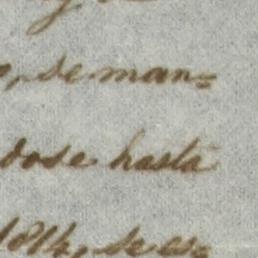 , se man=
dose hasta
1814, se es=